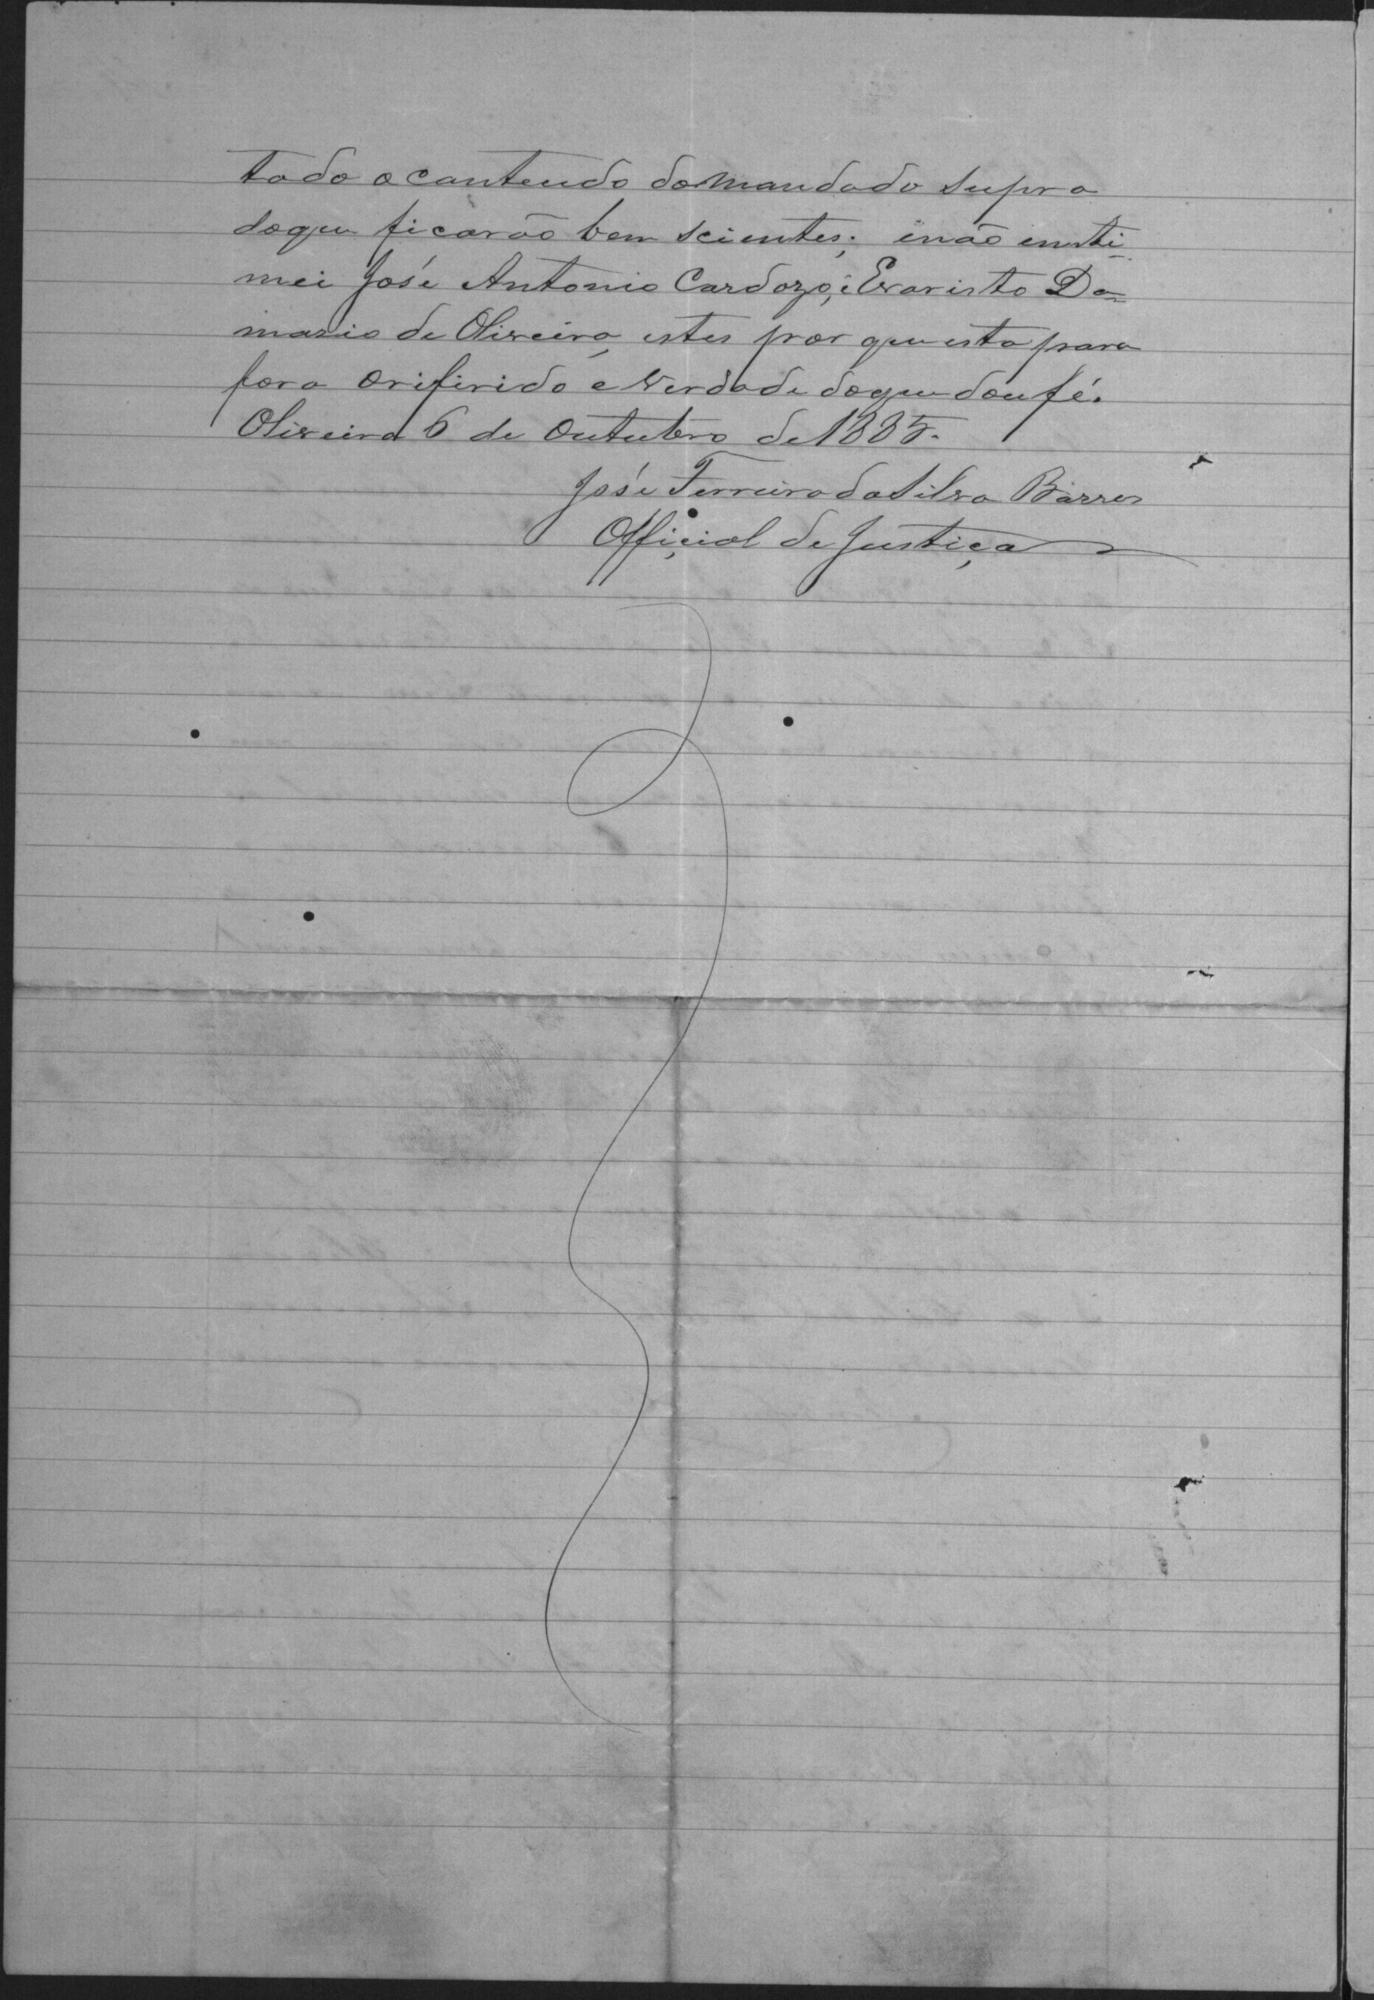 todo o conteudo do mandado supra
do que ficarão bem scientes; i não inti-
mei José Antonio Cardozo, i Evaristo Da-
mazio de Oliveira, estes por que esta para
fora o rifirido e verdade do que dou fé.
Oliveira 6 de Outubro de 1885.
José Ferreira da Silva Barros
Official de Justiça